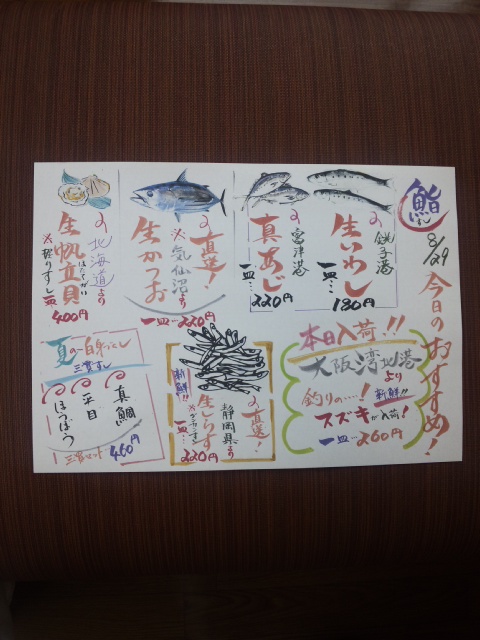 鮨
8/29
今日のおすすめ!
銚子港
より
生いわし
一皿…180円
富津港
より
真あじ
一皿…220円
直送!
気仙沼より
生かつお
一皿…220円
北海道より
生帆立貝
ほたてがい
※握りすし
一皿
400円
本日入荷!!
大阪湾北港
より
釣りの…!
新鮮!!
スズキが入荷!
一皿…260円
直送!
静岡県より
生しらす
※ グンカンまき
新鮮!!
一皿…
220円
夏の白身づくし
三貫すし
真鯛
平目
ほうぼう
三貫セット
460円